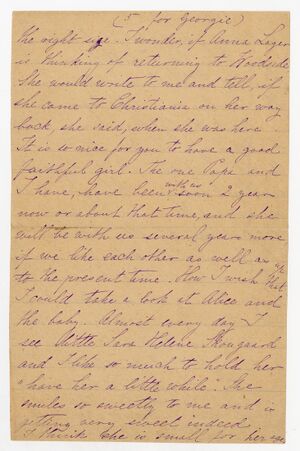 (5 for Georgie)
the right size. I wonder, if Anna Lager
is thinking of returning to Rockside
She would write to me and tell, if
she came to Christiania on her way
back she said, when she was here.
It is so nice for you to have a good
faithful girl. The one Papa and
I have, have been with us soon 2 year
now or about that time, and she
will be with us several years more
if we like each other as well as up
to the present time. How I wish that
I could take a look at Alice and
the baby. Almost every day I
see little Sara Helene Skougaard
and I like so much to hold her
"have her a little while". She
smiles so sweetly to me and is
getting very sweet indeed
I think she is small for her age